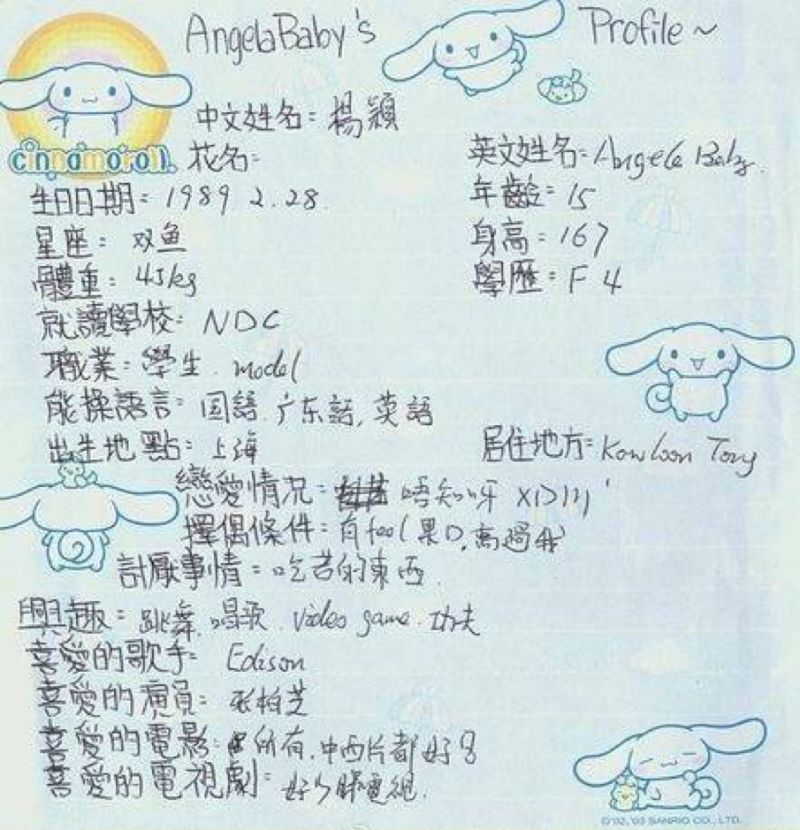 AngelaBaby's Profile~
cinnamoroll
中文姓名: 楊穎
花名: 英文姓名: Angela Baby.
生日日期: 1989 2.28. 年齡: 15
星座: 双鱼 身高: 167
體重: 45kg 學歷: F 4
就讀學校: NDC
職業: 學生. model
能操語言: 国語.广东話,英語
出生地點: 上海 居住地方: Kowloon Tong
戀愛情况: 唔知呀 XD
擇偶條件: 有feel果D,高過我
討厭事情: 吃苦的東西.
興趣: 跳舞,唱歌.video game.功夫
喜愛的歌手: Edison
喜愛的演員: 张柏芝
喜愛的電影: 所有,中西片都好多
喜愛的電視劇: 好少睇電視.
©'02,'03 SANRIO CO., LTD.